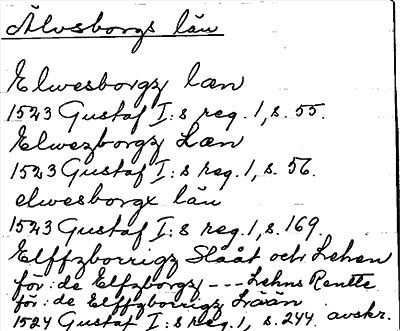 Älvsborgs län
Elwesborgz læn
1523 Gustaf I:s reg. 1, s. 55.
Elwezborgz Læn
1523 Gustaf I:s reg. 1, s. 56.
elwesborgx län
1523 Gustaf I:s reg. 1, s. 169.
Elffzborrigz Slååt och Lehen
för: de Elfzborgz --- Lehns Rentte
för: de Elffzborrigz Lään
1524 Gustaf I:s reg. 1, s. 244 avskr.